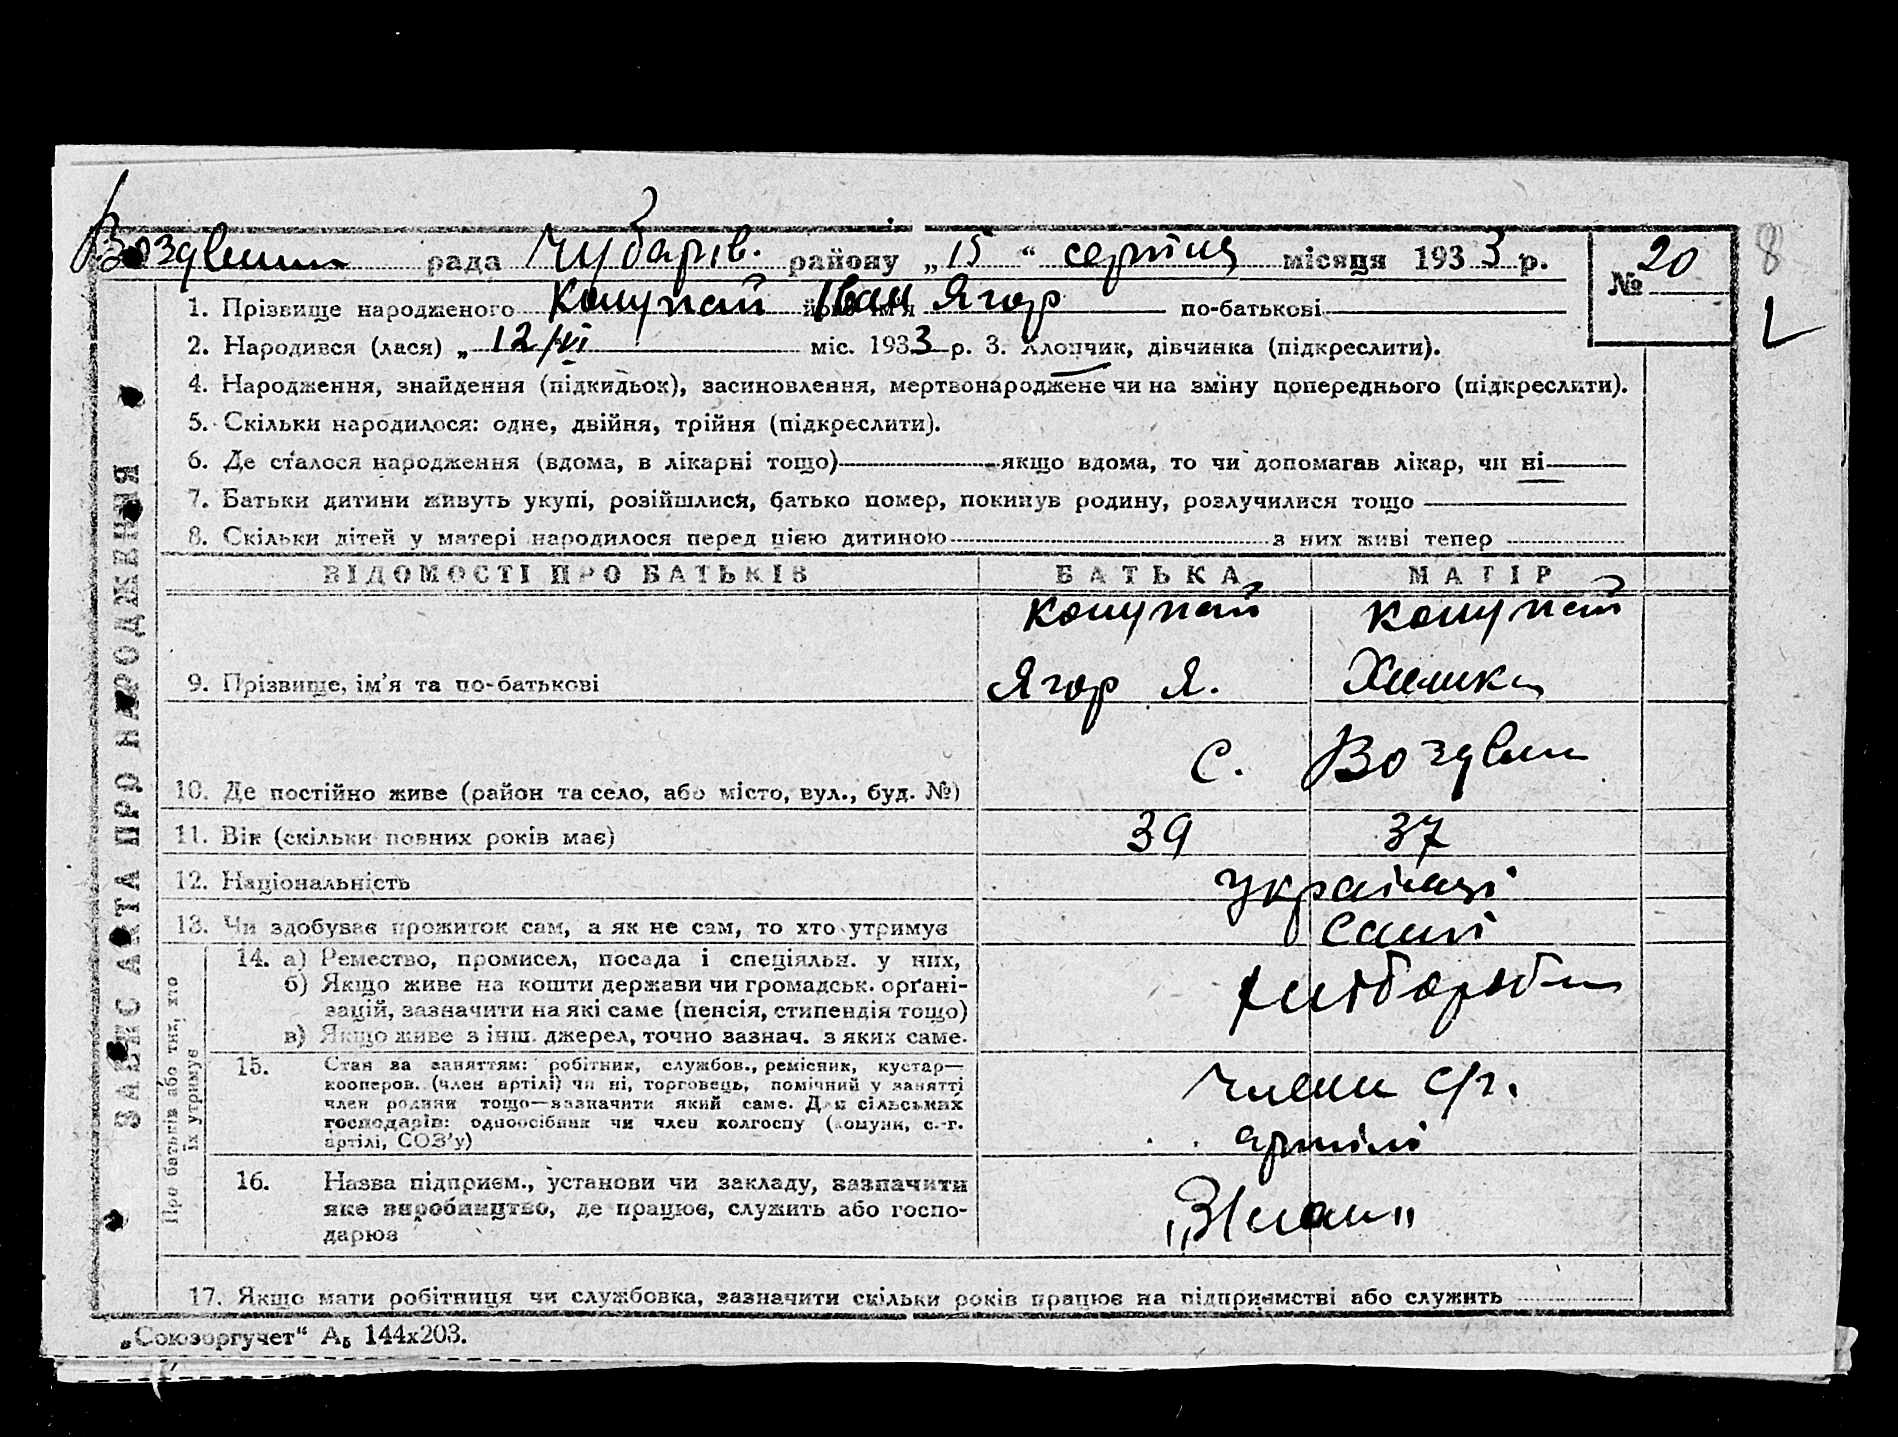 рада Чубарів. району „15“ серпня місяця 1933 р. № 20
8
1. Прізвище народженого його ім'я Іван Ягор по-батькові
2. Народився (лася) „12/VI міс. 1933 р. 3. Хлопчик, дівчинка (підкреслити).
4. Народження, знайдення (підкидьок), засиновлення, мертвонароджене чи на зміну попереднього (підкреслити).
5. Скільки народилося: одне, двійня, трійня (підкреслити).
6. Де сталося народження (вдома, в лікарні тощо) якщо вдома, то чи допомагав лікар, чи ні
7. Батьки дитини живуть укупі, розійшлися, батько помер, покинув родину, розлучилися тощо
8. Скільки дітей у матері народилося перед цією дитиною з них живі тепер
ЗАПИС АКТА ПРО НАРОДЖЕННЯ
ВІДОМОСТІ ПРО БАТЬКІВ БАТЬКА МАТІР
9. Прізвище, ім'я та по-батькові Ягор Я.
с.
10. Де постійно живе (район та село, або місто, вул., буд. №)
11. Вік (скільки повних років має) 39 37
12. Національність українці
13. Чи здобуває прожиток сам, а як не сам, то хто утримує самі
Про батьків або тих, хто їх утримує
14. а) Ремество, промисел, посада і спеціяльн. у них,
б) Якщо живе на кошти держави чи громадськ. орґані-
зацій, зазначити на які саме (пенсія, стипендія тощо)
в) Якщо живе з інш. джерел, точно зазнач. з яких саме.
15. Стан за заняттям: робітник, службов., ремісник, кустар—
кооперов. (член артілі) чи ні, торговець, помічний у занятті
член родини тощо—зазначити який саме. Для сільських
господарів: одноосібник чи член колгоспу (комуни, с.-г.
артілі, СОЗ'у)
члени с/г.
артілі
16. Назва підприєм., установи чи закладу, зазначити
яке виробництво, де працює, служить або госпо-
дарює
17. Якщо мати робітниця чи службовка, зазначити скільки років працює на підприємстві або служить
„Союзоргучет“ А₅ 144х203.